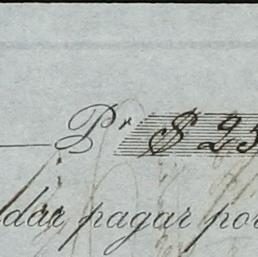 Pr $ 25
dar pagar por